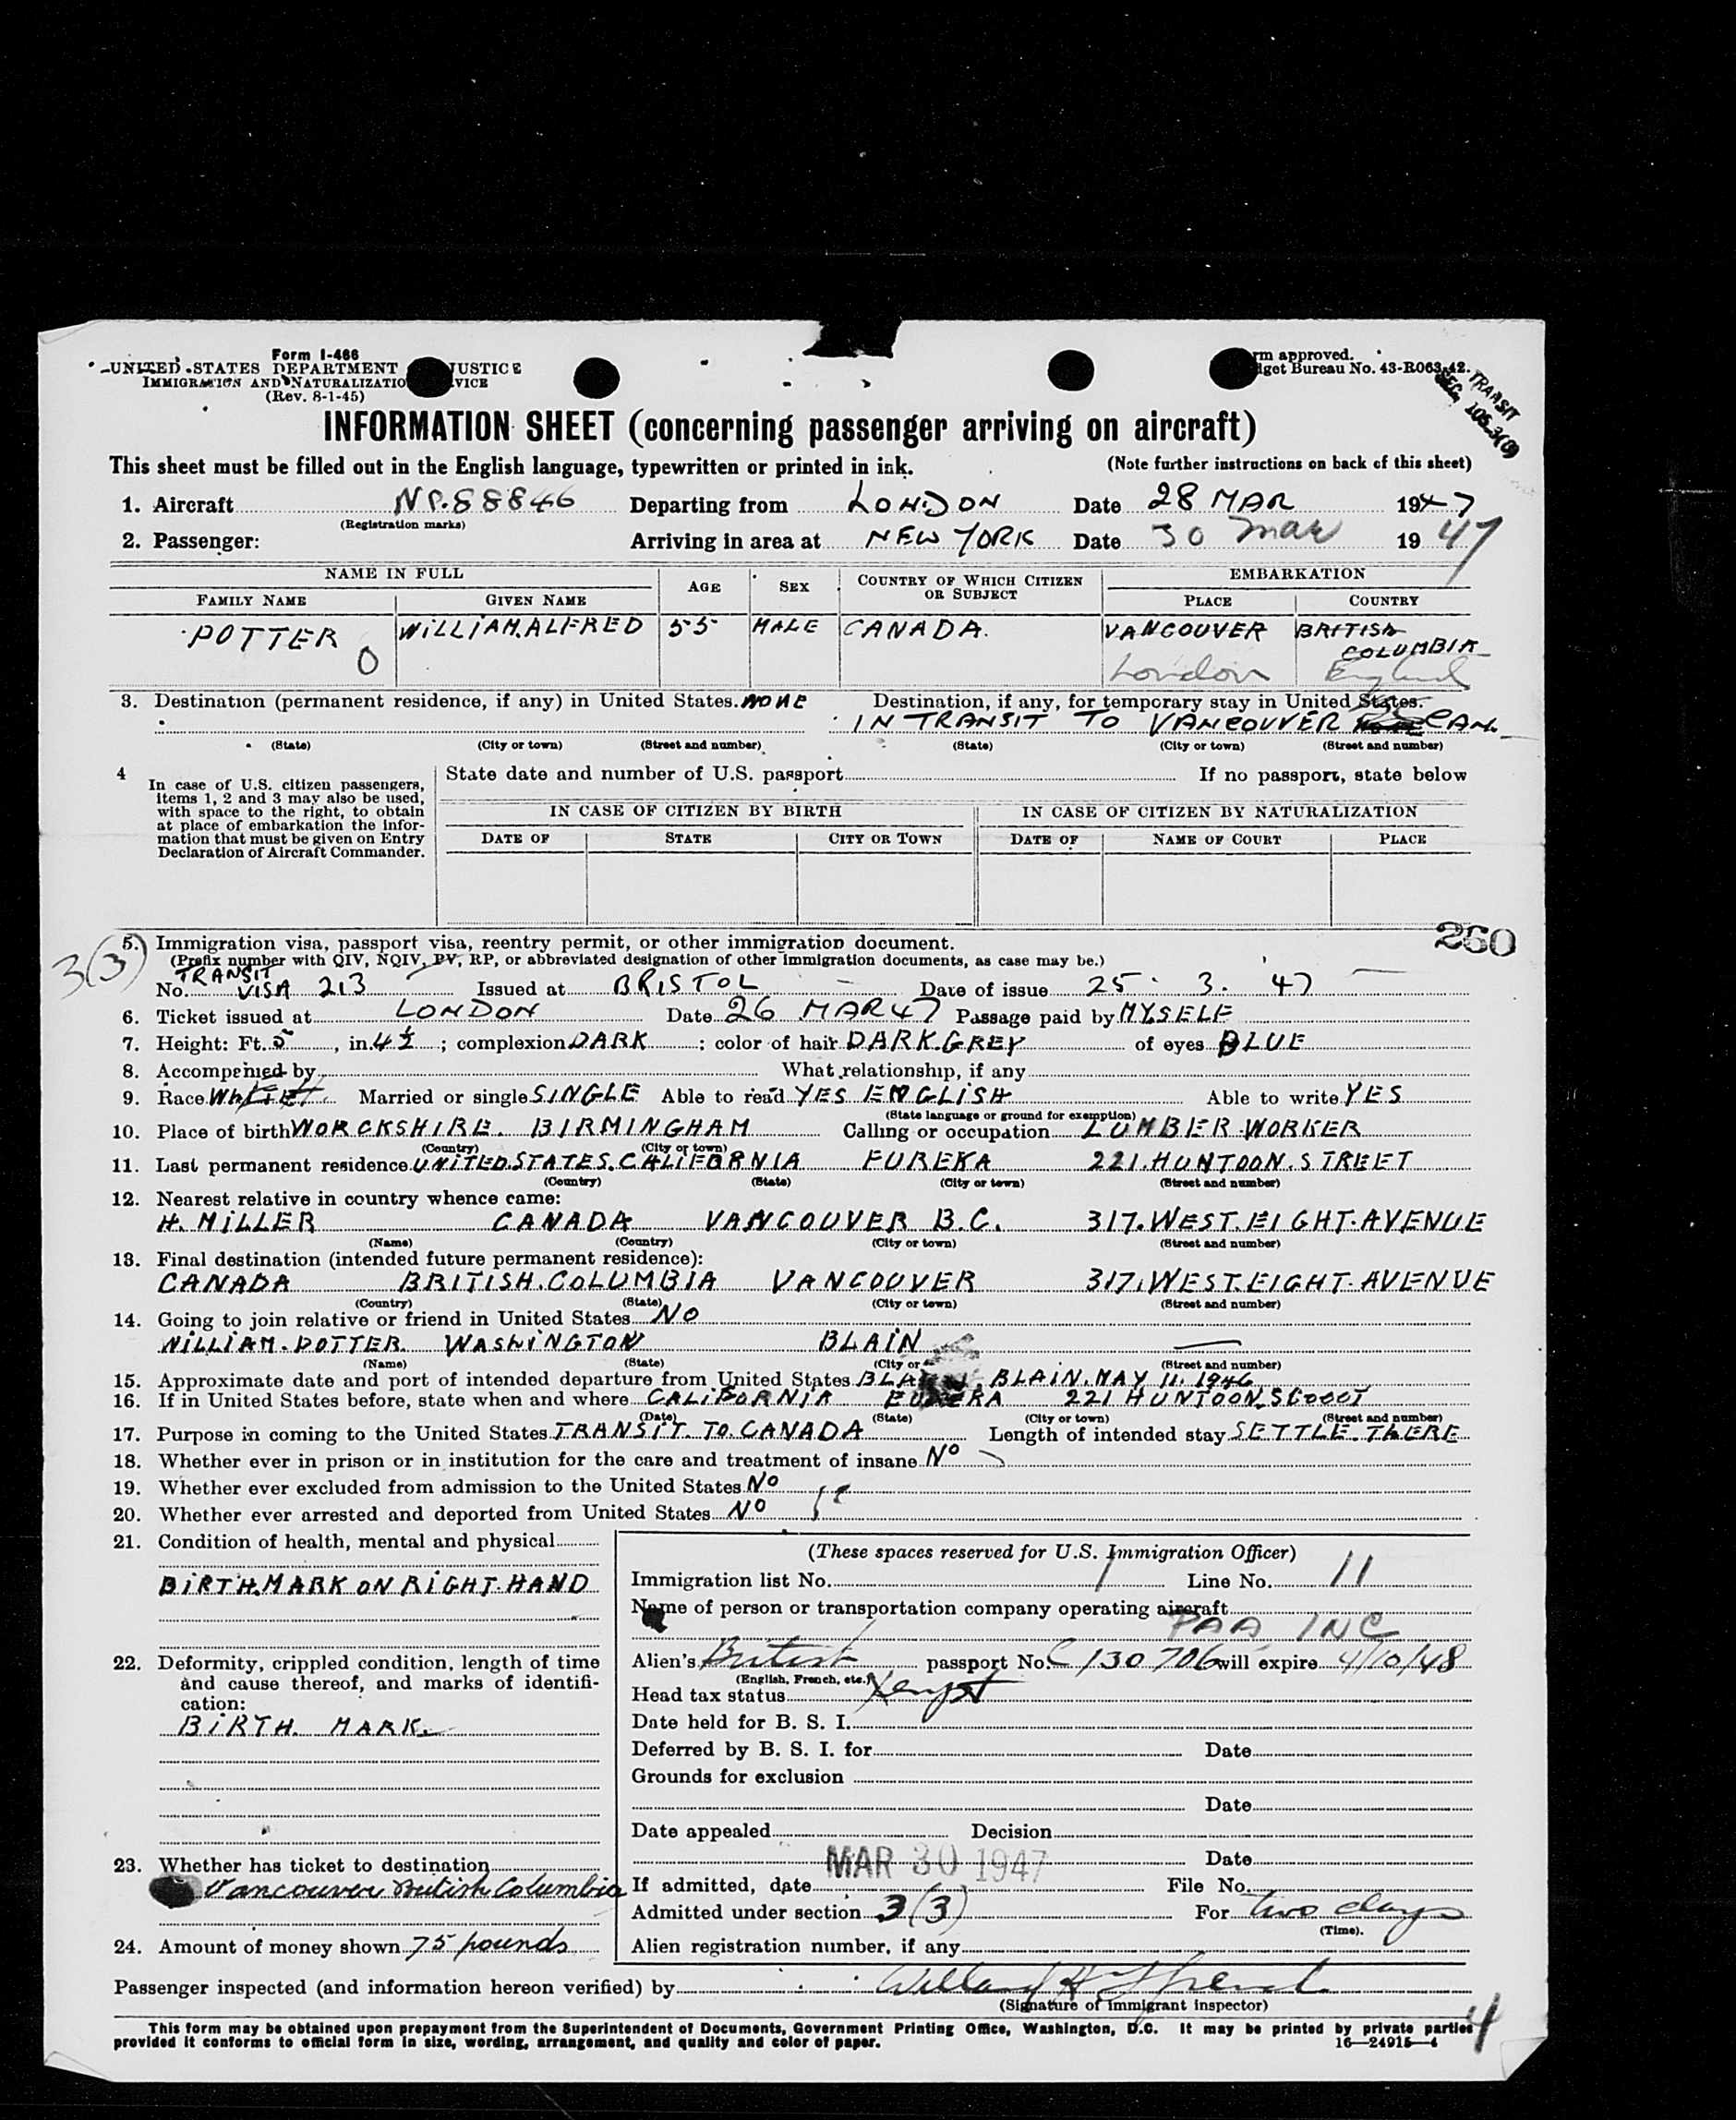 Form I-466
UNITED STATES DEPARTMENT JUSTICE
IMMIGRATION AND NATURALIZATIO VICE
(Rev. 8-1-45)
rm approved.
dget Bureau No. 43-R063-42.
TRANSIT
SEC. 105.3(8)
INFORMATION SHEET (concerning passenger arriving on aircraft)
This sheet must be filled out in the English language, typewritten or printed in ink. (Note further instructions on back of this sheet)
1. Aircraft 88846 Departing from LONDON Date 28 MAR 1947
(Registration marks)
2. Passenger: Arriving in area at NEW YORK Date 30 Mar 1947
NAME IN FULL AGE SEX COUNTRY OF WHICH CITIZEN OR SUBJECT EMBARKATION
FAMILY NAME GIVEN NAME PLACE COUNTRY
POTTER WILLIAM.ALFRED 55 MALE CANADA. VANCOUVER BRITISH COLUMBIA
0 London England
3. Destination (permanent residence, if any) in United States. NONE Destination, if any, for temporary stay in United States.
IN TRANSIT TO VANCOUVER CAN.
(State) (City or town) (Street and number) (State) (City or town) (Street and number)
4 In case of U.S. citizen passengers, items 1, 2 and 3 may also be used, with space to the right, to obtain at place of embarkation the information that must be given on Entry Declaration of Aircraft Commander.
State date and number of U.S. passport If no passport, state below
IN CASE OF CITIZEN BY BIRTH IN CASE OF CITIZEN BY NATURALIZATION
DATE OF STATE CITY OR TOWN DATE OF NAME OF COURT PLACE
260
3(3)
5. Immigration visa, passport visa, reentry permit, or other immigration document.
(Prefix number with QIV, NQIV, PV, RP, or abbreviated designation of other immigration documents, as case may be.)
No. TRANSIT VISA 213 Issued at BRISTOL Date of issue 25. 3. 47
6. Ticket issued at LONDON Date 26 MAR 47 Passage paid by MYSELF
7. Height: Ft. 5, in. 4½; complexion DARK; color of hair DARK.GREY of eyes BLUE
8. Accompenied by What relationship, if any
9. Race White Married or single SINGLE Able to read YES ENGLISH Able to write YES
(State language or ground for exemption)
10. Place of birth WORCKSHIRE. BIRMINGHAM Calling or occupation LUMBER WORKER
(Country) (City or town)
11. Last permanent residence UNITED.STATES. CALIFORNIA EUREKA 221.HUNTOON.STREET
(Country) (State) (City or town) (Street and number)
12. Nearest relative in country whence came:
H. MILLER CANADA VANCOUVER B.C. 317.WEST.EIGHT.AVENUE
(Name) (Country) (City or town) (Street and number)
13. Final destination (intended future permanent residence):
CANADA BRITISH.COLUMBIA VANCOUVER 317.WEST.EIGHT.AVENUE
(Country) (State) (City or town) (Street and number)
14. Going to join relative or friend in United States NO
WILLIAM.POTTER. WASHINGTON BLAIN
(Name) (State) (City or (Street and number)
15. Approximate date and port of intended departure from United States BLAIN. MAY 11. 1946
16. If in United States before, state when and where CALIFORNIA 221 HUNTOON
(Date) (State) (City or town) (Street and number)
17. Purpose in coming to the United States TRANSIT. TO. CANADA Length of intended stay SETTLE. THERE
18. Whether ever in prison or in institution for the care and treatment of insane No
19. Whether ever excluded from admission to the United States No
20. Whether ever arrested and deported from United States No
21. Condition of health, mental and physical
BIRTH.MARK ON RIGHT.HAND
22. Deformity, crippled condition, length of time and cause thereof, and marks of identification:
BIRTH. MARK.
23. Whether has ticket to destination
Vancouver British Columbia
24. Amount of money shown 75 pounds
(These spaces reserved for U.S. Immigration Officer)
Immigration list No. 1 Line No. 11
Name of person or transportation company operating aircraft
PAA INC
Alien's British passport No. C 130706 will expire 4/10/48
(English, French, etc.)
Head tax status
Date held for B. S. I.
Deferred by B. S. I. for Date
Grounds for exclusion
Date
Date appealed Decision
MAR 30 1947 Date
If admitted, date File No.
Admitted under section 3(3) For two days
(Time).
Alien registration number, if any
Passenger inspected (and information hereon verified) by
(Signature of immigrant inspector)
This form may be obtained upon prepayment from the Superintendent of Documents, Government Printing Office, Washington, D.C. It may be printed by private parties
provided it conforms to official form in size, wording, arrangement, and quality and color of paper. 16—24915—4
4